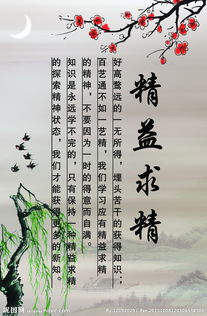 精益求精
好高骛远的一无所得，埋头苦干的获得知识；
百艺通不如一艺精，我们学习应有精益求精
的精神，不要因为一时的得意而自满。
知识是永远学不完的，只有保持一种精益求精
的探索精神状态，我们才能获得更多的新知。
昵图网